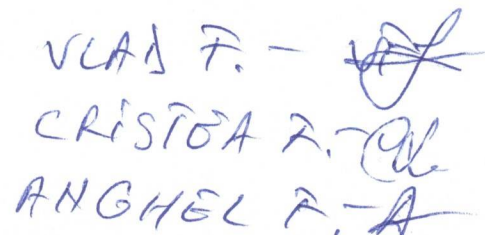 VLAD F. -
CRISTEA F. -
ANGHEL F. -